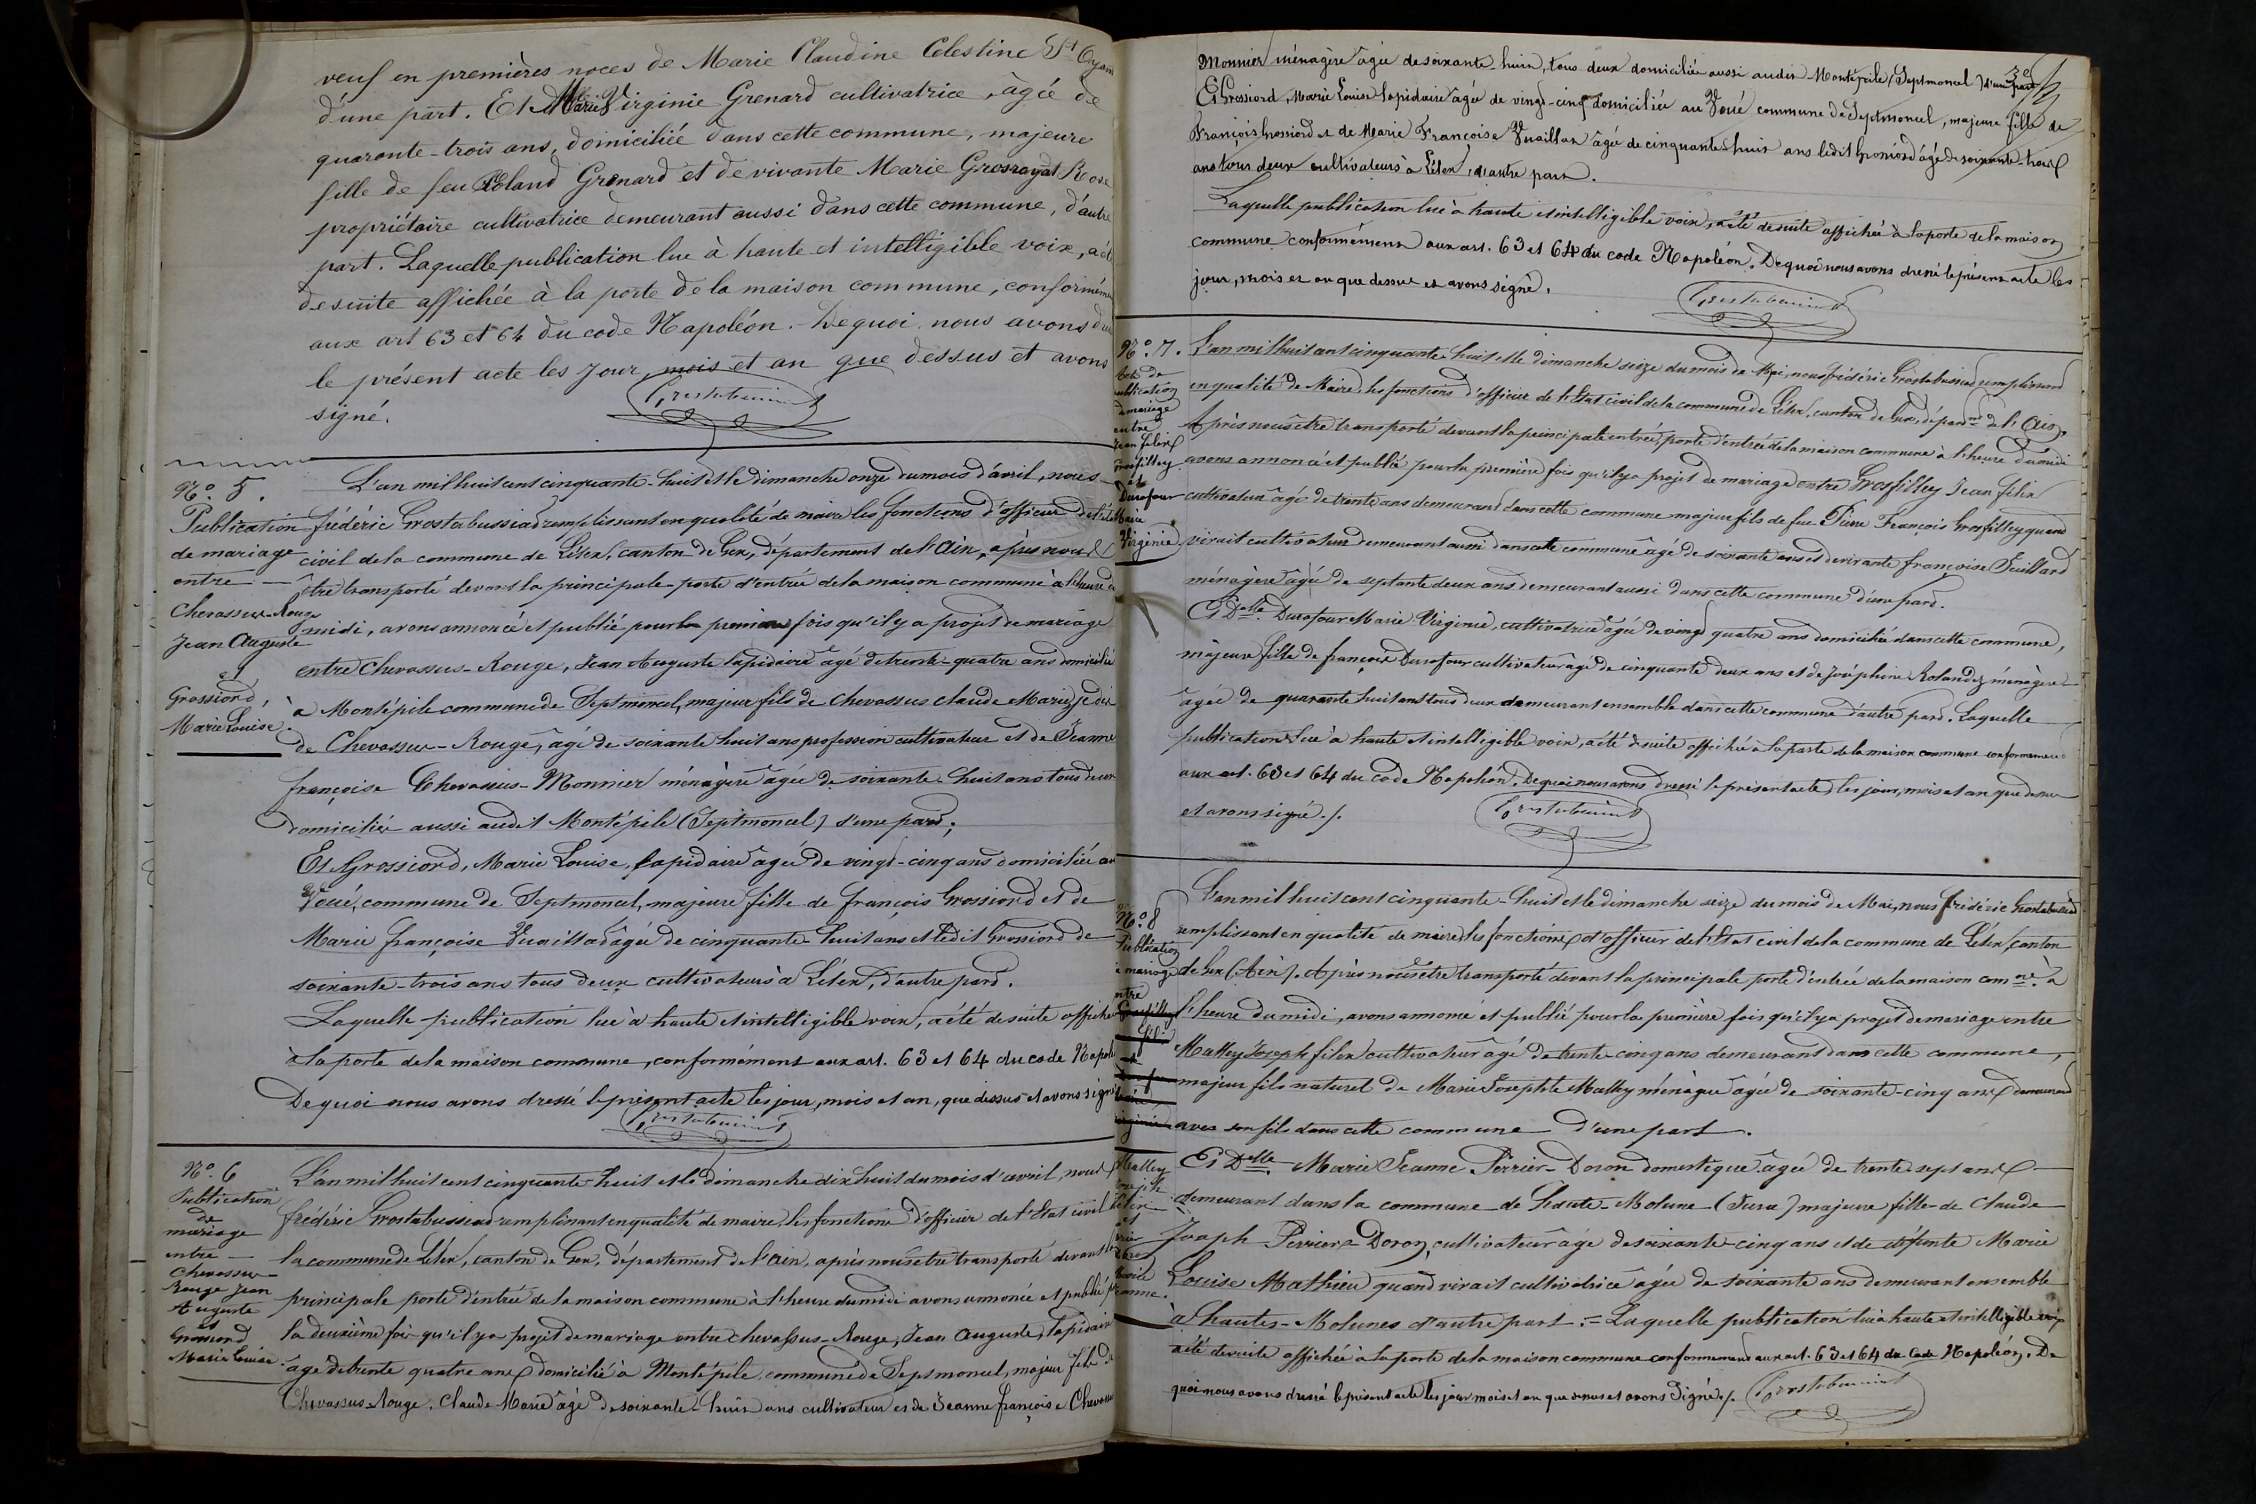 veuf en premières noces de Marie Claudine Celestine St Oyant
d'une part. Et Mlle Marie Virginie Grenard cultivatrice, âgée de
quarante-trois ans, domiciliée dans cette commune, majeure
fille de feu Roland Grenard et de vivante Marie Grosrayat Rose
propriétaire cultivatrice demeurant aussi dans cette commune, d'autre
part. Laquelle publication lue à haute et intelligible voix, a été
desuite affichée à la porte de la maison commune, conformément
aux art 63 et 64 du code Napoléon. De quoi nous avons
le présent acte les jour, mois et an que dessus et avons
signé.
No. 5.
Publication
de mariage
entre
Chevassus-Rouge
Jean Auguste
et
Grossiord,
Marie Louise.
L'an mil huit cent cinquante-huit et le dimanche onze du mois d'avril, nous
frédéric Grostabussiad remplissant en qualité de maire les fonctions d'officier de l'état
civil de la commune de Lélex, canton de Gex, département de l'Ain, après nous
être transporté devant la principale porte d'entrée de la maison commune à l'heure de
midi, avons annoncé et publié pour la première fois qu'il y a projet de mariage
entre Chevassus-Rouge, Jean Auguste lapidaire âgé de trente-quatre ans domicilié
à Montépile commune de Septmoncel, majeur fils de Chevassus Claude Marie, je dis
de Chevassus-Rouge, âgé de soixante huit ans profession cultivateur et de Jeanne
françoise Chevassus-Monnier ménagère âgée de soixante-huit ans tous deux
domiciliés aussi audit Montépile (Septmoncel) d'une part;
Et Grossiord, Marie Louise, lapidaire âgée de vingt-cinq ans domiciliée au
commune de Septmoncel, majeure fille de françois Grossiord et de
Marie françoise Vuaillat âgée de cinquante-huit ans et ledit Grossiord de
soixante-trois ans tous deux cultivateurs à Lélex, d'autre part.
Laquelle publication lue à haute et intelligible voix, a été desuite affichée
à la porte de la maison commune, conformément aux art. 63 et 64 du code Napoléon
De quoi nous avons dressé le présent acte les jour, mois et an, que dessus et avons signé
No. 6
Publication
de
mariage
entre
Chevassus-
Rouge Jean
Auguste
et
Grossiord
Marie Louise
L'an mil huit cent cinquante-huit et le dimanche dix huit du mois d'avril, nous
frédéric Grostabussiad remplissant en qualité de maire, les fonctions d'officier de l'Etat civil
la commune de Lélex, canton de Gex, département de l'Ain, après nous être transporté devant la
principale porte d'entrée de la maison commune à l'heure du midi avons annoncé et publié pr
la deuxième fois qu'il y a projet de mariage entre Chevassus-Rouge, Jean Auguste, lapidaire
âgé de trente quatre ans domicilié à Montépile, commune de Septmoncel, majeur fils de
Chevassus-Rouge, Claude Marie âgé de soixante-huit ans cultivateur et de Jeanne françoise Chevassus
Monnier ménagère âgée de soixante-huit, tous deux domiciliés aussi audit Montépile (Septmoncel) d'une part
Et Grossiord, Marie Louise lapidaire âgée de vingt-cinq domiciliée au commune de Septmoncel, majeure fille de
François Grossiord et de Marie Françoise Vuaillat âgée de cinquante-huit ans ledit Grossiord âgé de soixante-trois
ans tous deux cultivateurs à Lélex, d'autre part.
Laquelle publication lue à haute et intelligible voix, a été desuite affichée à la porte de la maison
commune conformément aux art. 63 et 64 du code Napoléon. De quoi nous avons dressé le présent acte les
jour, mois et an que dessus et avons signé.
No. 7.
Acte de
publication
de mariage
entre
Jean Felix
Grosfilley
et
Durafour
Marie
Virginie
L'an mil huit cent cinquante-huit et le dimanche seize du mois de Mai, nous frédéric Grostabussiad remplissant
en qualité de Maire, les fonctions d'officier de l'Etat civil de la commune de Lélex, canton de Gex, départ.nt de l'Ain,
Après nous être transporté devant la principale entrée, porte d'entrée de la maison commune à l'heure du midi
avons annoncé et publié pour la première fois qu'il y a projet de mariage entre Grosfilley Jean félix
cultivateur âgé de trente ans demeurant dans cette commune majeur fils de feu Pierre François Grosfilley quand
vivait cultivateur demeurant aussi dans cette commune âgé de soixante ans et de vivante françoise Feuillard
ménagère âgée de septante deux ans demeurant aussi dans cette commune d'une part.
Et Delle Durafour Marie Virginie, cultivatrice âgée de vingt quatre ans domiciliée dans cette commune,
majeure fille de françois Durafour cultivateur âgé de cinquante deux ans et de Joséphine Rolandez ménagère
âgée de quarante huit ans tous deux demeurant ensemble dans cette commune d'autre part. Laquelle
publication lue à haute et intelligible voix, a été desuite affichée à la porte de la maison commune conformément
aux art. 63 et 64 du Code Napoléon. De quoi nous avons dressé le présent acte, les jour, mois et an que dessus
et avons signé./.
No. 8
Publication
de mariage
entre
Mathey
Joseph
félix
et
L'an mil huit cent cinquante-huit et le dimanche seize du mois de Mai, nous frédéric Grostabussiad
remplissant en qualité de maire, les fonctions d'officier de l'Etat civil de la commune de Lélex, canton
de Gex (Ain). Après nous être transporté devant la principale porte d'entrée de la maison com.ne à
l'heure du midi, avons annoncé et publié pour la première fois qu'il y a projet de mariage entre
Mathey Joseph félix cultivateur âgé de trente-cinq ans demeurant dans cette commune,
majeur fils naturel de Marie Josephte Mathey ménagère âgée de soixante-cinq ans demeurant
avec son fils dans cette commune d'une part.
Et Delle Marie Jeanne Perrier-Doron domestique âgée de trente-sept ans
demeurant dans la commune de Haute-Molune (Jura) majeure fille de Claude
Joseph Perrier-Doron, cultivateur âgé de soixante-cinq ans et de défunte Marie
Louise Mathieu quand vivait cultivatrice âgée de soixante ans demeurant ensemble
à hautes-Molunes d'autre part. = Laquelle publication lue à haute et intelligible voix
a été desuite affichée à la porte de la maison commune conformément aux art. 63 et 64 du Code Napoléon. De
quoi nous avons dressé le présent acte les jour mois et an que dessus et avons signé./.